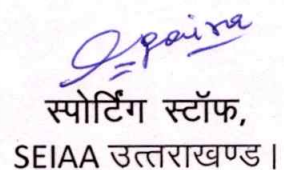 स्पोर्टिंग स्टॉफ,
SEIAA उत्तराखण्ड।